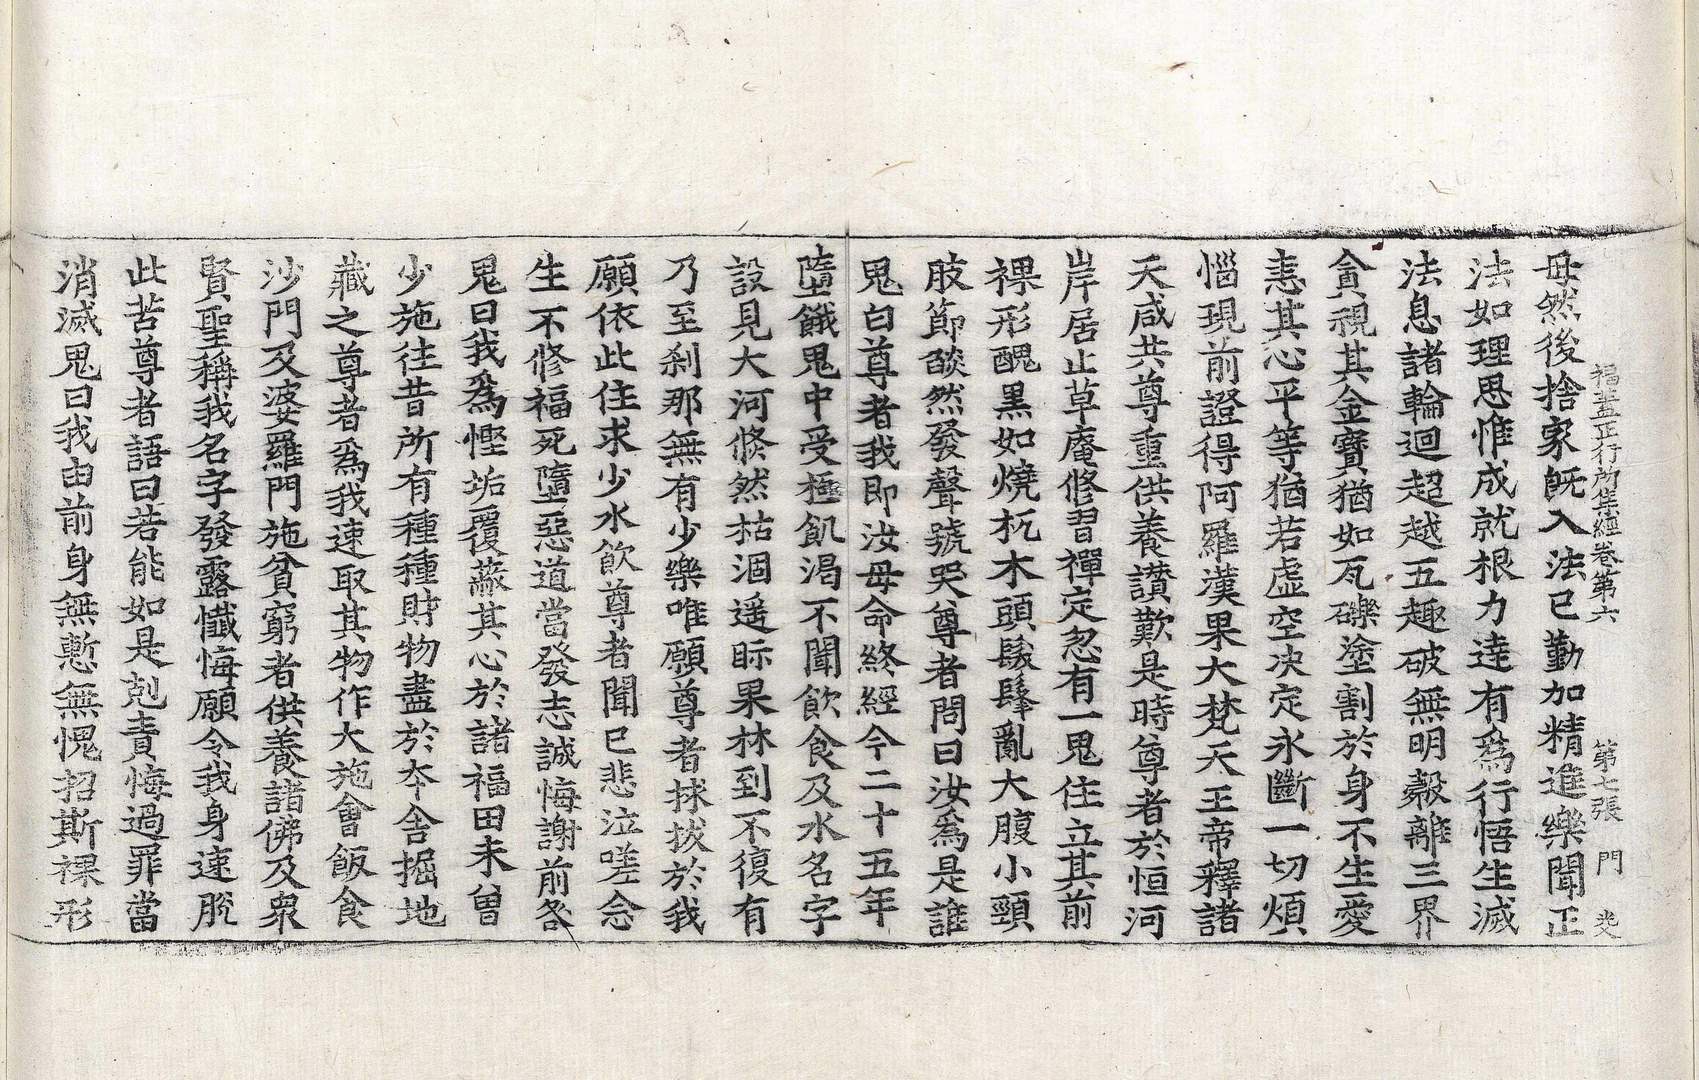 福蓋正行所集經卷第六　第七張　門
母然後捨家旣入法已勤加精進樂聞正
法如理思惟成就根力達有爲行悟生滅
法息諸輪迴超越五趣破無明縠離三界
貪視其金寶猶如瓦礫塗割於身不生愛
恚其心平等猶若虛空决定永斷一切煩
惱現前證得阿羅漢果大梵天王帝釋諸
天咸共尊重供養讃歎是時尊者於恒河
岸居止草庵修習禪定忽有一鬼住立其前
裸形醜黒如燒杌木頭髮髼亂大腹小頸
肢節燄然發聲號哭尊者問曰汝爲是誰
鬼白尊者我即汝母命終經今二十五年
墮餓鬼中受極飢渴不聞飲食及水名字
設見大河倐然枯涸遥眎果林到不復有
乃至刹那無有少樂唯願尊者捄拔於我
願依此住求少水飲尊者聞已悲泣嗟念
生不修福死墮惡道當發志誠悔謝前咎
鬼曰我爲慳垢覆蔽其心於諸福田未曾
少施往昔所有種種財物盡於夲舍掘地
藏之尊者爲我速取其物作大施會飯食
沙門及婆羅門施貧窮者供養諸佛及衆
賢聖稱我名字發露懺悔願令我身速脫
此苦尊者語曰若能如是剋責悔過罪當
消滅鬼曰我由前身無慙無愧招斯裸形